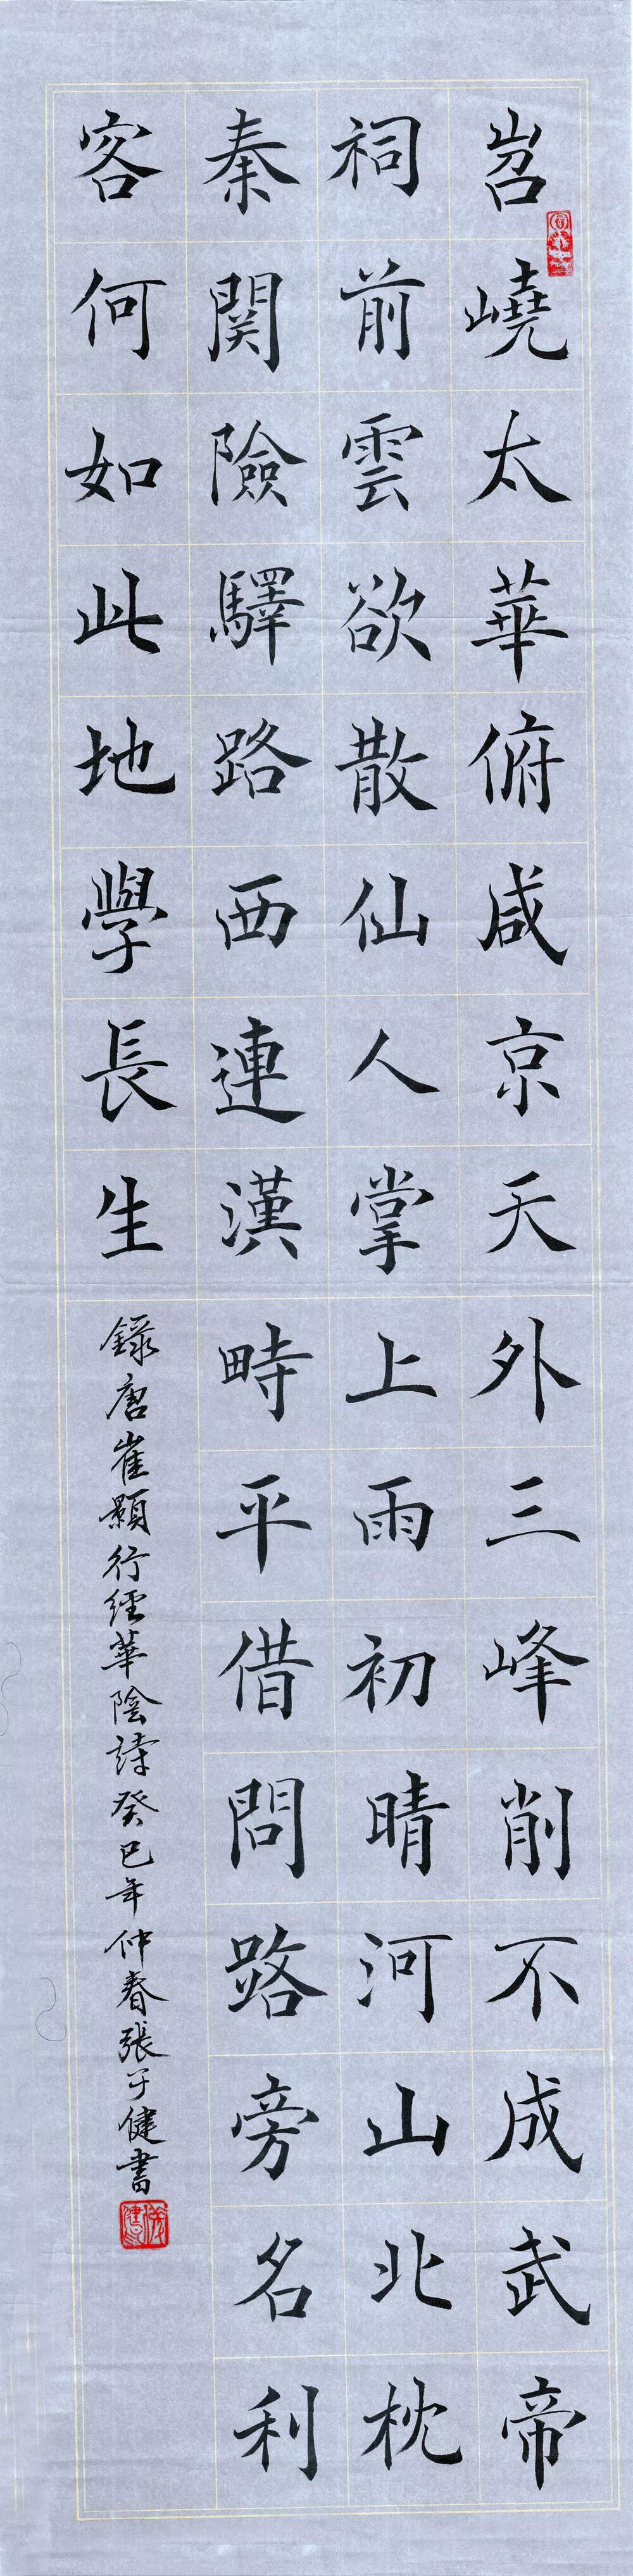 岧嶢太華俯咸京天外三峰削不成武帝
祠前雲欲散仙人掌上雨初晴河山北枕
秦關險驛路西連漢畤平借問路旁名利
客何如此地學長生
錄唐崔顥行經華陰詩癸巳年仲春張子健書